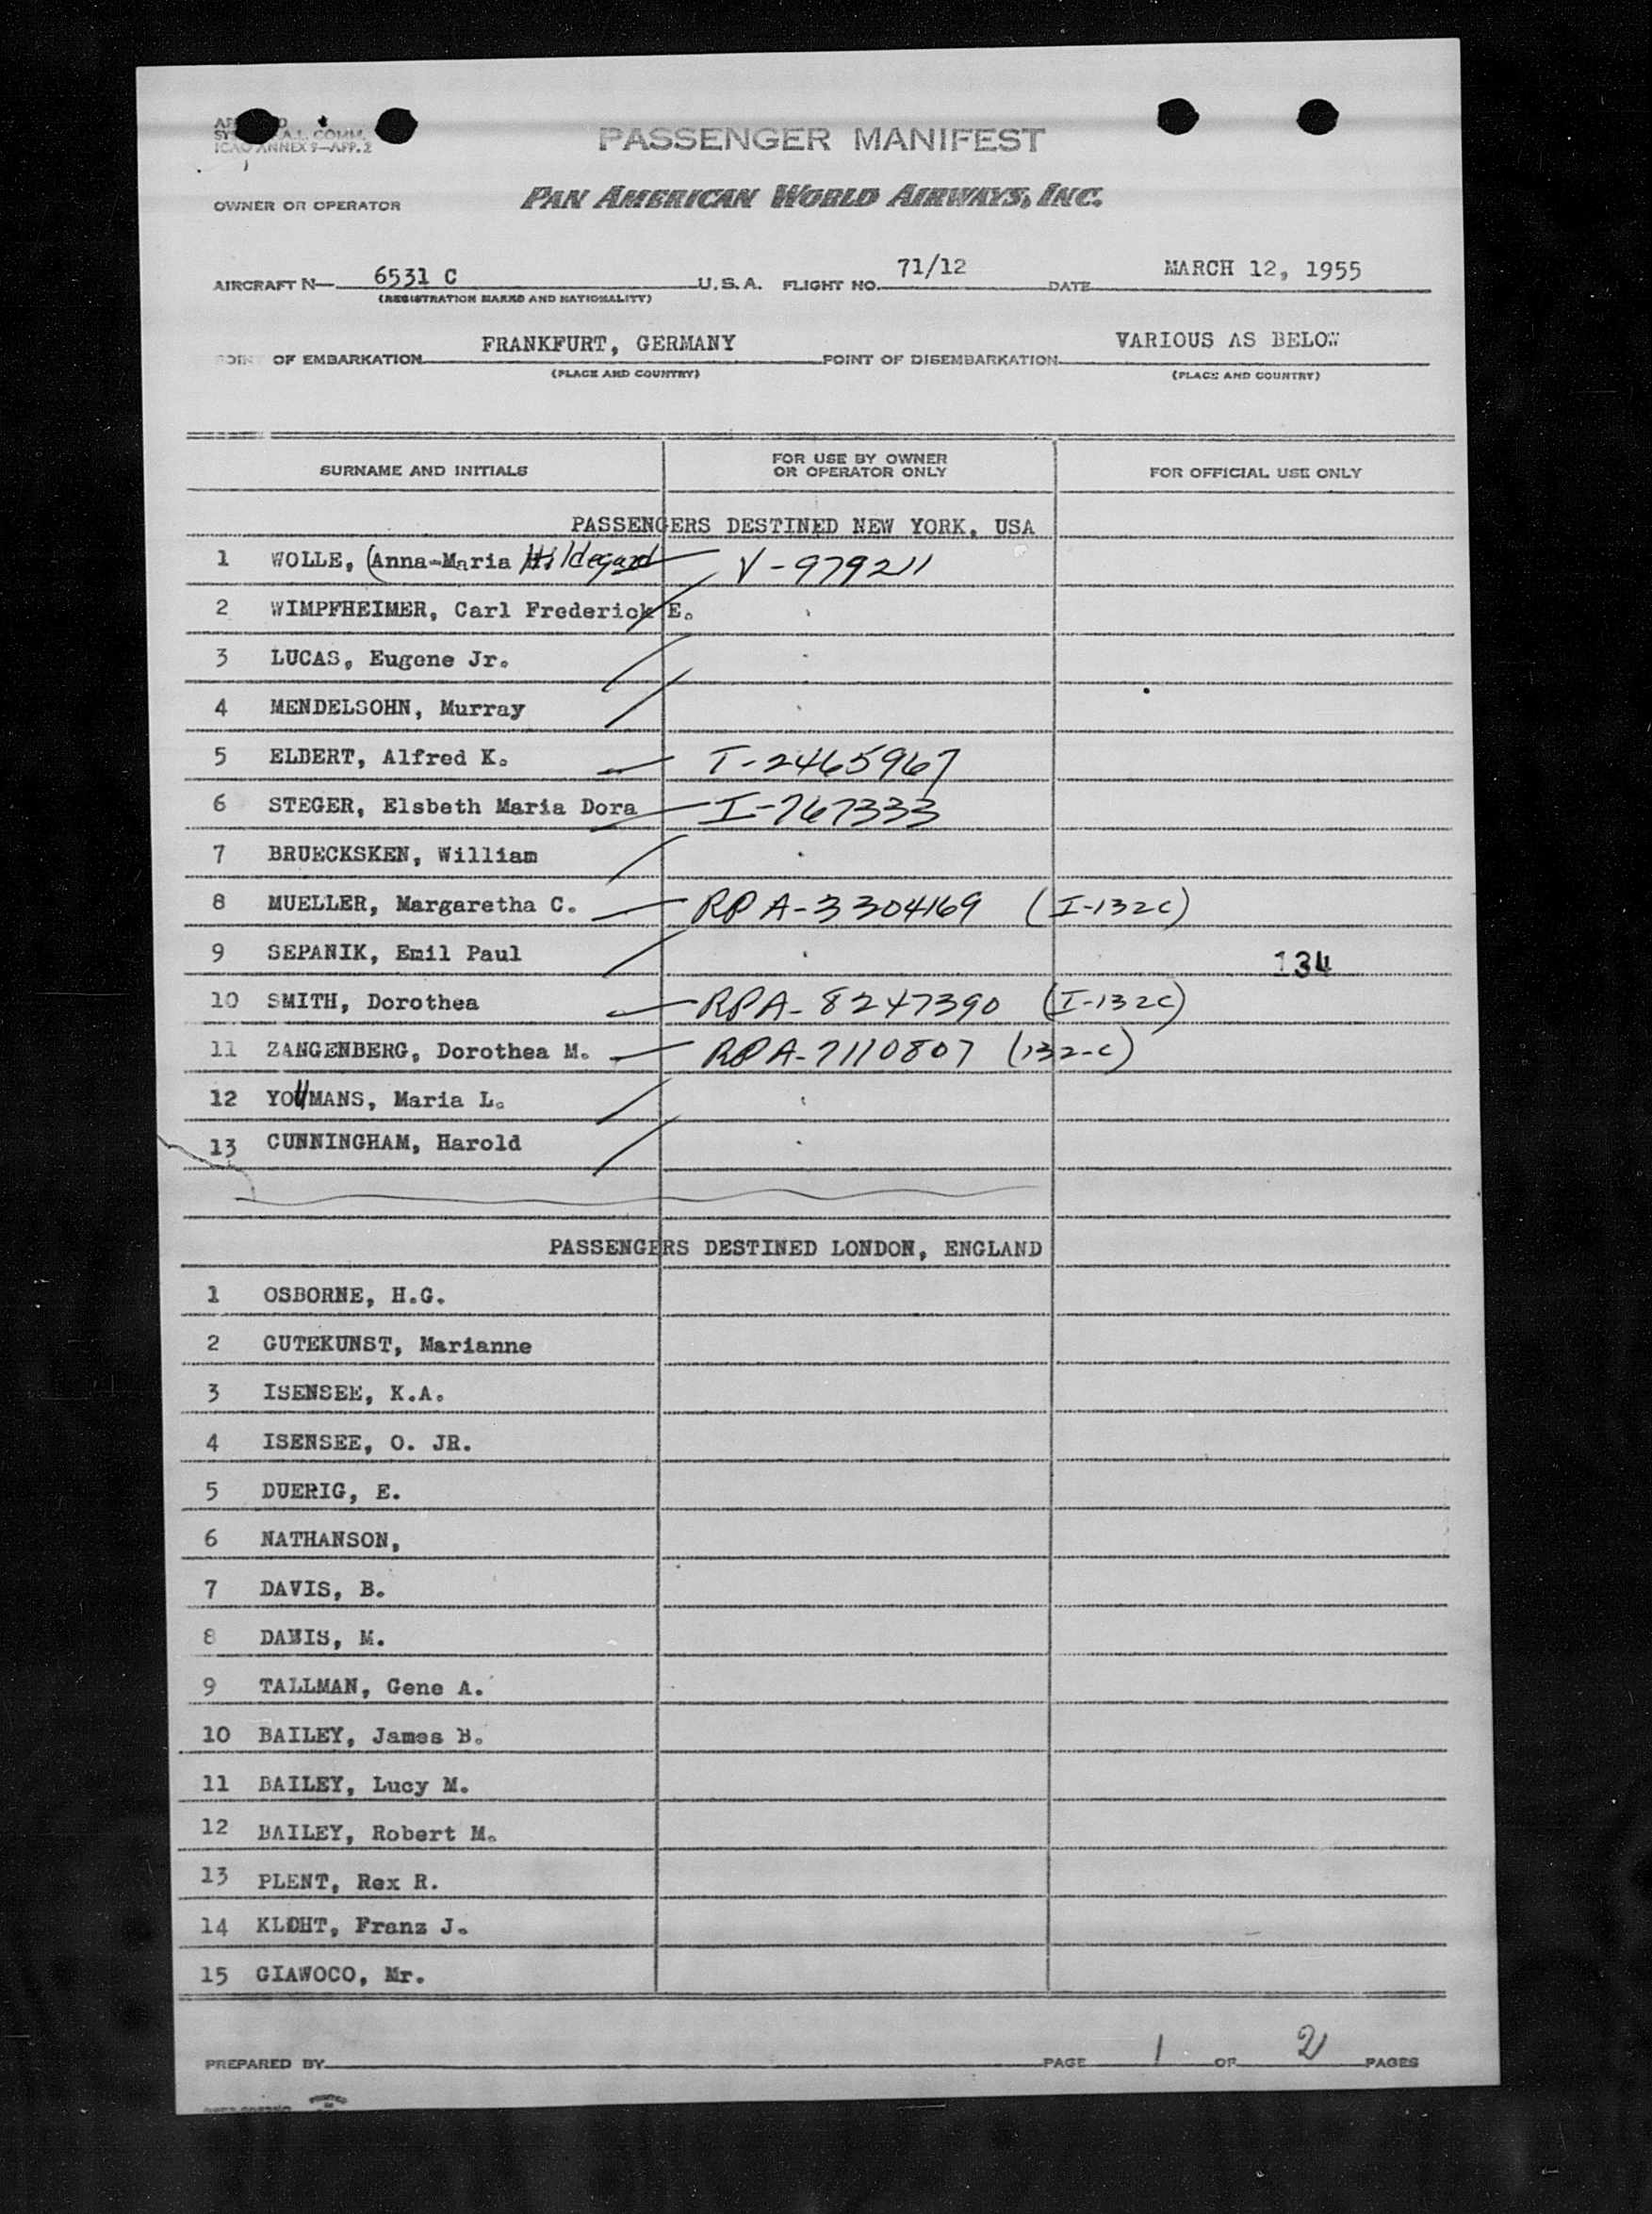 ICAO ANNEX 9—APP. 2
PASSENGER MANIFEST
OWNER OR OPERATOR PAN AMERICAN WORLD AIRWAYS, INC.
AIRCRAFT N— 6531 C U.S.A. FLIGHT NO. 71/12 DATE MARCH 12, 1955
(REGISTRATION MARKS AND NATIONALITY)
POINT OF EMBARKATION FRANKFURT, GERMANY POINT OF DISEMBARKATION VARIOUS AS BELOW
(PLACE AND COUNTRY) (PLACE AND COUNTRY)
SURNAME AND INITIALS FOR USE BY OWNER OR OPERATOR ONLY FOR OFFICIAL USE ONLY
PASSENGERS DESTINED NEW YORK, USA
1 WOLLE, (Anna-Maria Hildegard V-979211
2 WIMPFHEIMER, Carl Frederick E.
3 LUCAS, Eugene Jr.
4 MENDELSOHN, Murray
5 ELBERT, Alfred K. I-2465967
6 STEGER, Elsbeth Maria Dora I-767333
7 BRUECKSKEN, William
8 MUELLER, Margaretha C. RP A-3304169 (I-132c)
9 SEPANIK, Emil Paul 134
10 SMITH, Dorothea RPA-8247390 (I-132c)
11 ZANGENBERG, Dorothea M. RPA-7110807 (132-c)
12 YOUMANS, Maria L.
13 CUNNINGHAM, Harold
PASSENGERS DESTINED LONDON, ENGLAND
1 OSBORNE, H.G.
2 GUTEKUNST, Marianne
3 ISENSEE, K.A.
4 ISENSEE, O. JR.
5 DUERIG, E.
6 NATHANSON,
7 DAVIS, B.
8 DAVIS, M.
9 TALLMAN, Gene A.
10 BAILEY, James B.
11 BAILEY, Lucy M.
12 BAILEY, Robert M.
13 PLENT, Rex R.
14 Franz J.
15 GIAWOCO, Mr.
PREPARED BY PAGE 1 OF 2 PAGES